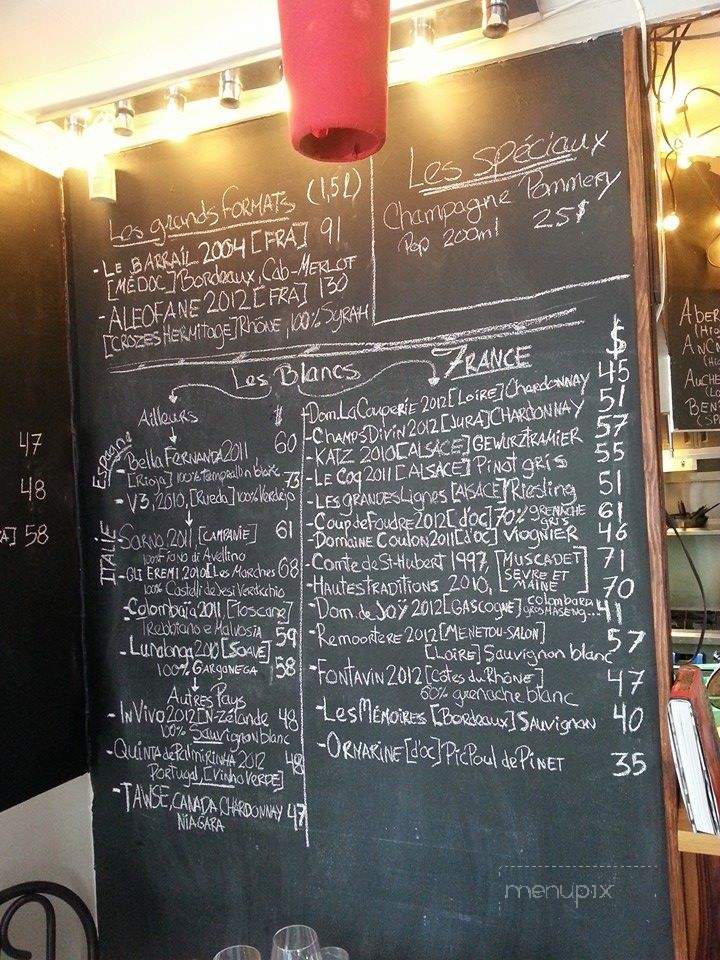 Les grands FORMATS (1,5L)
- LE BARRAIL 2004 [FRA] 91
[MÉDOC] Bordeaux, Cab-MERLOT
- ALEOFANE 2012 [FRA] 130
[CROZES HERMITAGE] Rhône, 100% SYRAH
Les spéciaux
Champagne Pommery
Pop 200ml 25$
Les Blancs
Ailleurs $
Espagne
- Bella FERNANDA 2011 60
[Rioja] 100% tempranllo blanc
- V3, 2010, [Rueda] 100% Verdejo 73
ITALIE
SARNO 2011 [CAMPANIE] 61
100% Fiano di Avellino
- GLI EREMI 2010 [Les Marches 68
100% Castelli de Jesi Verdicchio
- Colombaia 2011, [Toscane]
Trebbiano e Malvosia 59
- Lunalonga 2010 [SOAVE]
100% GARGANEGA 58
AUTRES PAYS
- IN VIVO 2012 [N-Zélande 48
100% Sauvignon blanc
- QUINTA de Palmirinha 2012 48
Portugal, [Vinho VERDE]
- TAWSE, CANADA, CHARDONNAY 47
NIAGARA
FRANCE $
- Dom. La Couperie 2012 [LOIRE] Chardonnay 45
- CHAMPS Divin 2012 [JURA] CHARDONNAY 51
- KATZ 2010 [ALSACE] GEWURZTRAMIER 57
- Le Coq 2011 [ALSACE] Pinot gris 55
- LES GRANDES Lignes [ALSACE] Riesling 51
- Coup de Foudre 2012 [d'OC] 70% GRENACHE GRIS 61
- Domaine Coulon 2011 [d'OC] VIOGNIER 46
- Comte de St-Hubert 1997, [MUSCADET 71
- HAUTES TRADITIONS 2010, SEVRE ET MAINE] 70
- Dom. de Joÿ 2012 [GASCOGNE] colombard, gros MASENG... 41
- Remoortere 2012 [MENETOU-SALON]
[LOIRE] Sauvignon blanc 57
- FONTAVIN 2012 [Côtes du Rhône] 47
60% grenache blanc
- Les MÉMOIRES [Bordeaux] SAUVIGNON 40
- ORMARINE [d'OC] PicPoul de PINET 35
47
48
] 58
ABER
ANCN
AUCHE
BEN
menupix